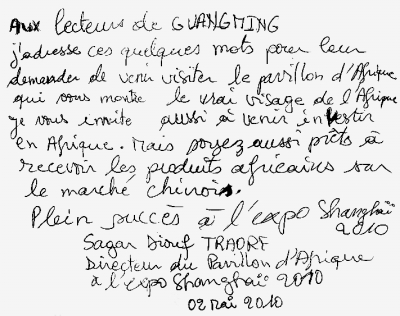 Aux lecteurs de GUANGMING
j'adresse ces quelques mots pour leur
demander de venir visiter le pavillon d'Afrique
qui vous montre le vrai visage de l'Afrique
je vous invite aussi à venir investir
en Afrique. Mais soyez aussi prêts à
recevoir les produits africains sur
le marché chinois.
Plein succès à l'expo Shanghaï
2010
Sagar Diouf TRAORE
Directeur du Pavillon d'Afrique
à l'expo Shanghaï 2010
02 Mai 2010